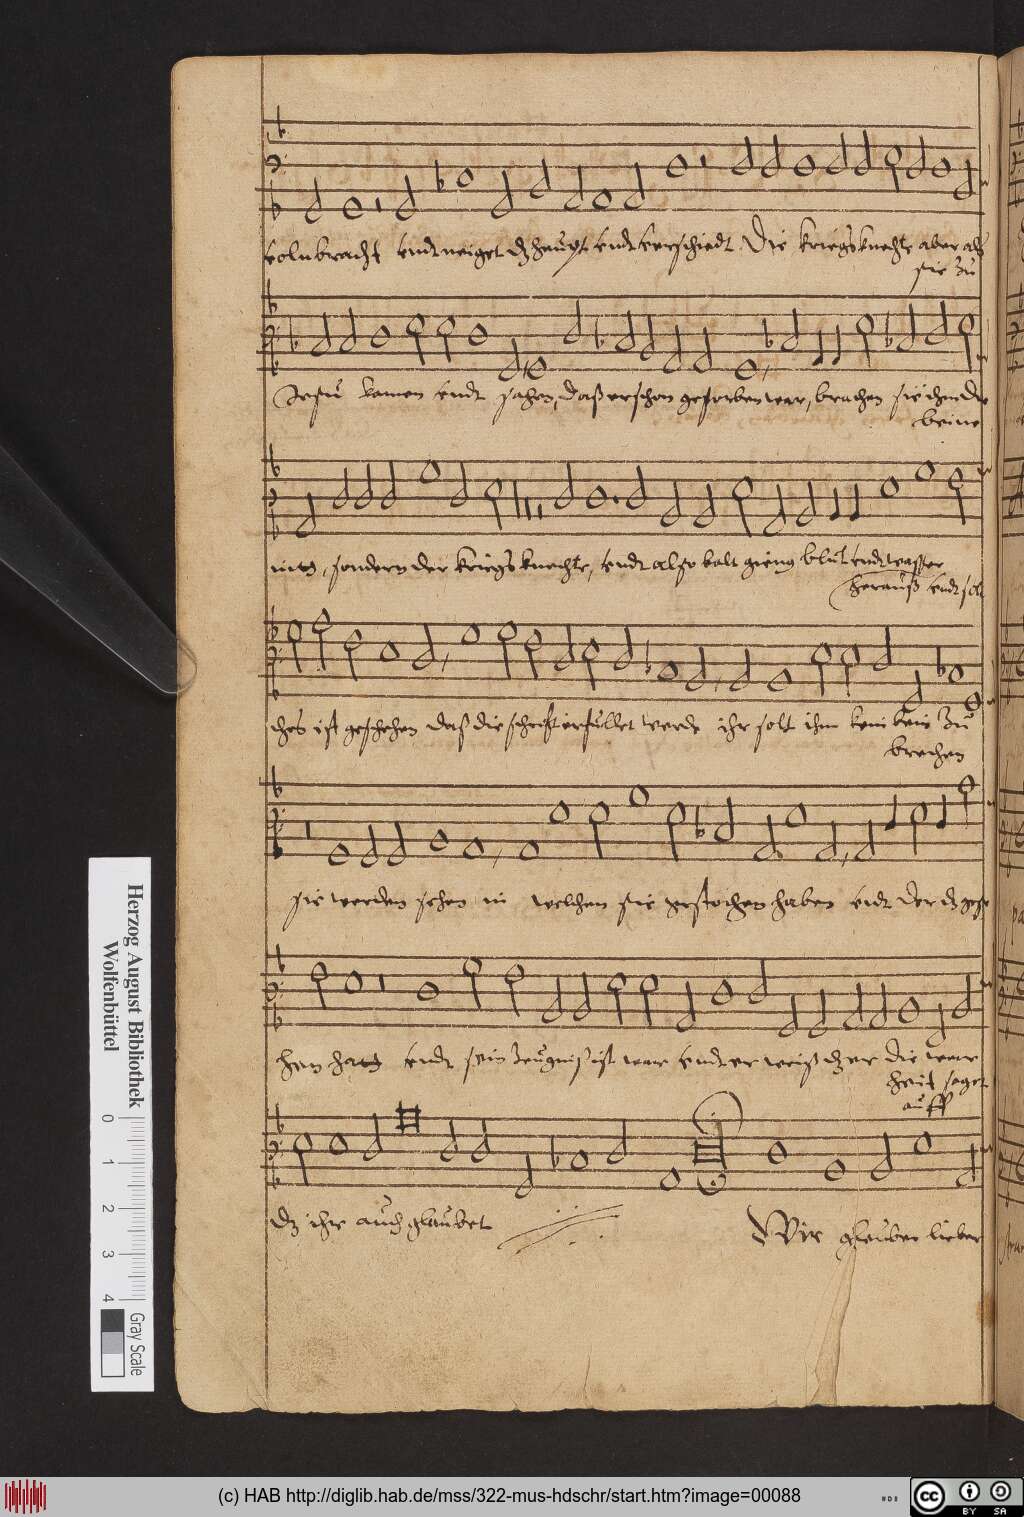 volnbracht undt neiget dz haupt undt verschiedt Die kriegsknechte aber als
sie zu
Jesu kamen undt sahen, daß er schon gestorben war, brachen sie ihm die
beine
nitt, sondern der kriegs knechte, undt also balt gieng blut undt wasser
herauß undt sol
ches ist geschehen daß die schrift erfullet werde ihr solt ihm kein bein zu
brechen
sie werden sehen in welchen sie gestochen haben undt der dz gese
hen hatt undt sein zeugniß ist war undt er weiß dz er die war
heit saget
auff
dz ihr auch glaubet
Wir gleuben lieber
Herzog August Bibliothek
Wolfenbüttel
0 1 2 3 4
Gray Scale
(c) HAB http://diglib.hab.de/mss/322-mus-hdschr/start.htm?image=00088
cc BY SA